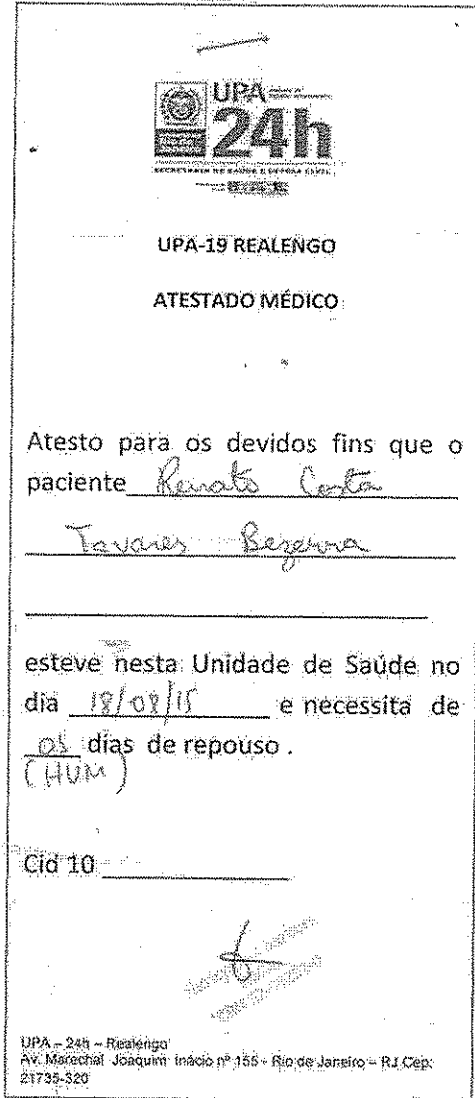 UPA
24h
SECRETARIA DE SAÚDE E DEFESA CIVIL
UPA-19 REALENGO
ATESTADO MÉDICO
Atesto para os devidos fins que o
paciente Renato Costa
Tavares Bezerra
esteve nesta Unidade de Saúde no
dia 18/08/15 e necessita de
dias de repouso .
(HUM)
Cid 10
UPA – 24h – Realengo
Av. Marechal Joaquim Inácio nº 155 - Rio de Janeiro – RJ Cep:
21735-320